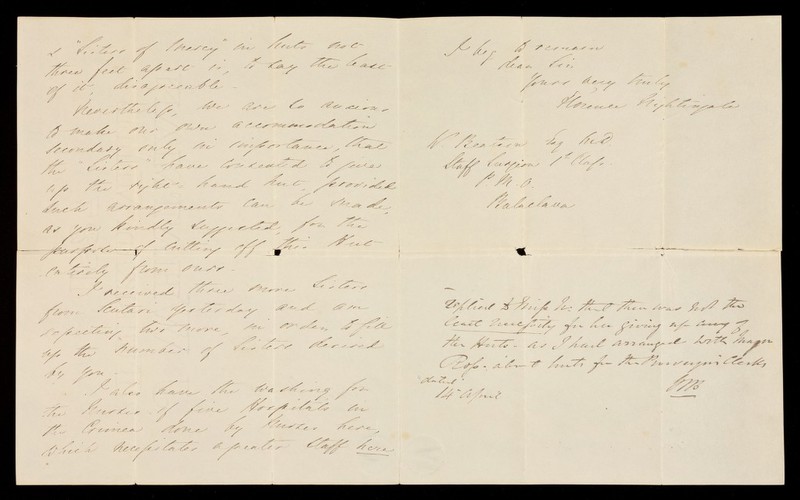 & "Sisters of Mercy" in huts not
three feet apart is, to say the least
of it, disagreeable.
Nevertheless, we are so anxious
to make our own accommodation
secondary only in importance, that
the "Sisters" have consented to give
up the right hand hut, provided
such arrangements can be made,
as you kindly suggested, for the
purpose of cutting off this Hut
entirely from ours.
I received three more Sisters
from Scutari yesterday and am
expecting two more, in order to fill
up the number of Sisters desired
by you.
I also have the washing for
the Nurses of five Hospitals in
the Crimea done by Nurses here,
which necessitates a greater Staff here
I beg to remain
dear Sir
Yours very truly
Florence Nightingale
W Beatson Esq M.D.
Staff Surgeon 1st Class
P.M.O.
Balaclava
Replied to Miss N. that there was not the
least necessity for her giving up any of
the Huts as I had arranged with Major
Ross about huts for the Purveyor's Clerks
dated
14 April